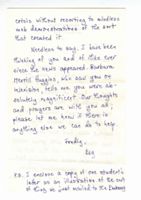 crisis without resorting to mindless
web demonstrations of the sort
that created it
Needless to say, I have been
thinking of you and of Mike ever
since the news appeared. Barbara
Merrill Huggins, who saw you on
television, tells me you were ab-
solutely magnificent. Our thoughts
and prayers are with you all,
please let me know if there is
anything else we can do to help
Fondly,
P.S. I enclose a copy of one student's
letter as an illustration of the sort
of thing we just mailed to the Embassy